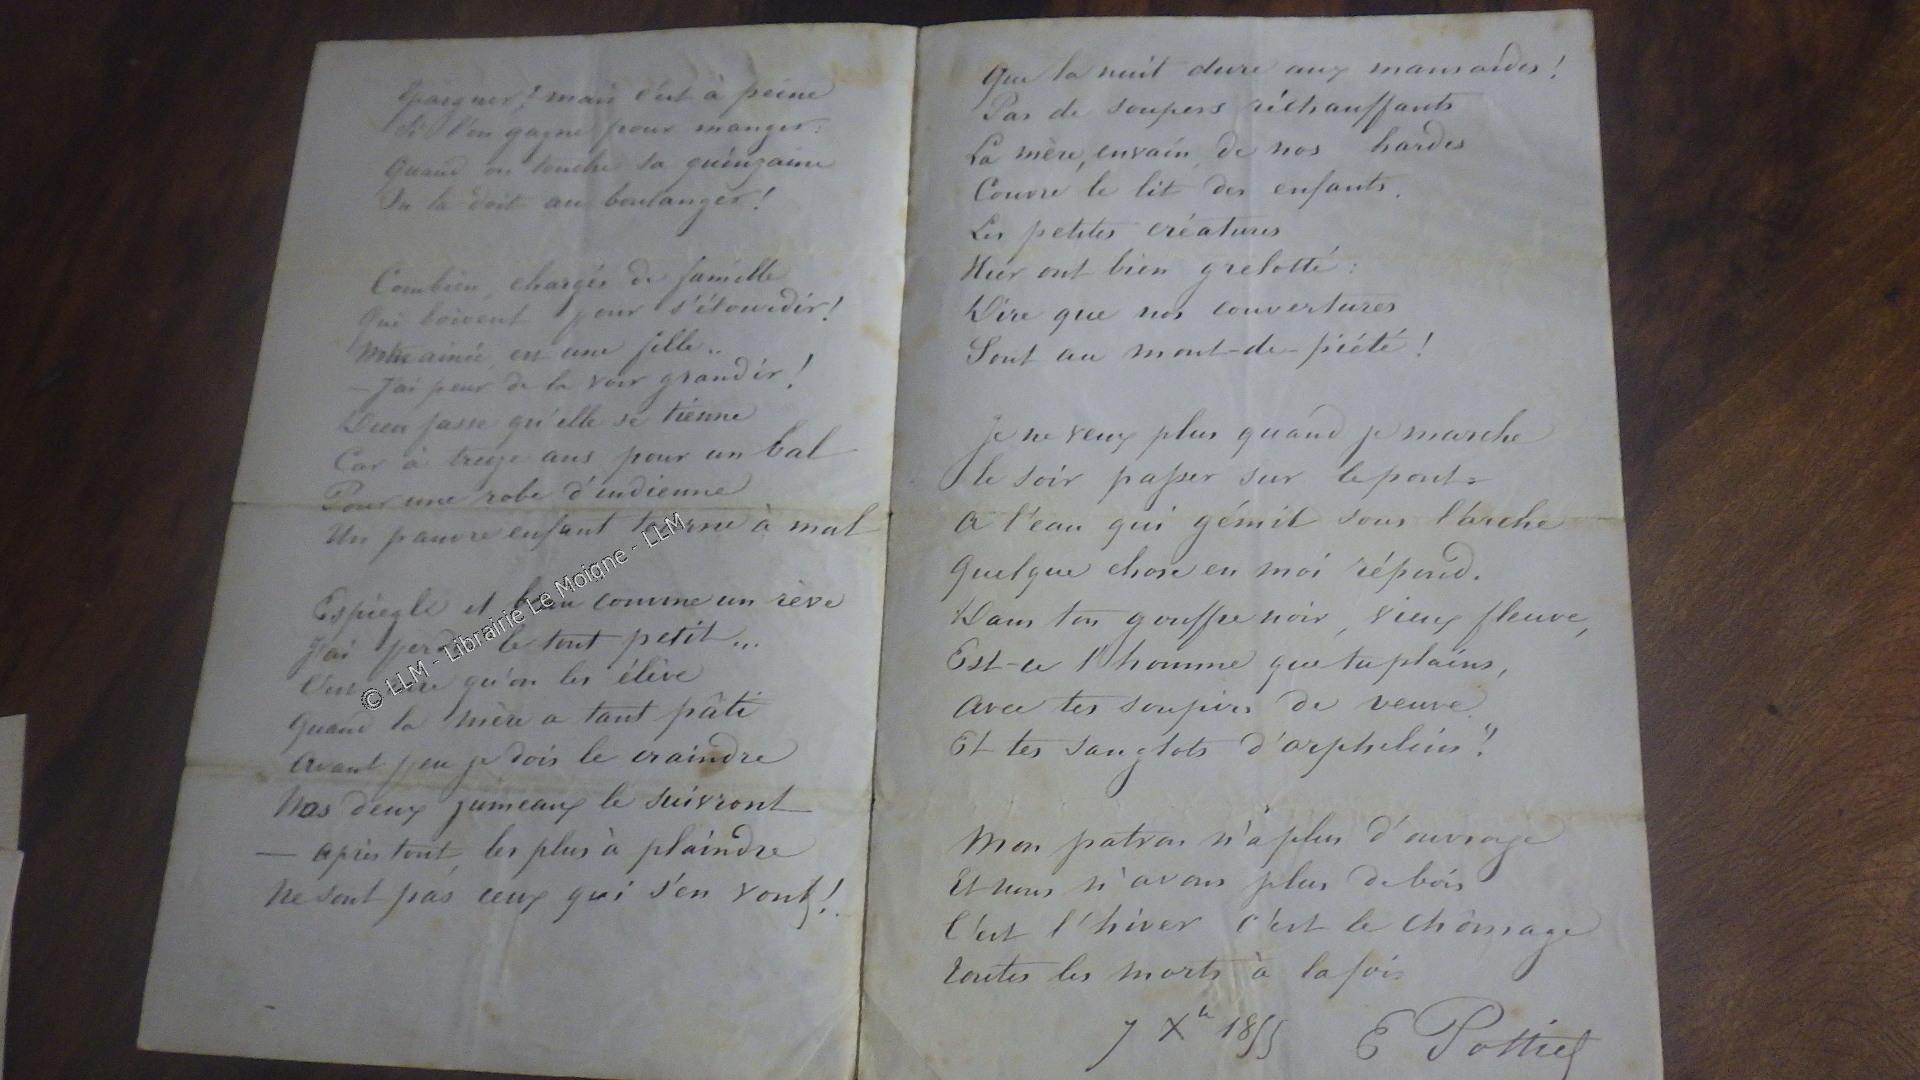 Epargner ! mais c'est à peine
Si l'on gagne pour manger :
Quand on touche sa quinzaine
On la doit au boulanger !
Combien, chargés de famille
Qui boivent pour s'étourdir !
Mon ainée, est une fille..
— J'ai peur de la voir grandir !
Dieu fasse qu'elle se tienne
Car à treize ans pour un bal
Pour une robe d'indienne
Un pauvre enfant tourne à mal
Espiègle et beau comme un rêve
J'ai perdu le tout petit...
C'est rare qu'on les élève
Quand la mère a tant pâti
Avant peu je dois le craindre
Nos deux jumeaux le suivront
— Après tout les plus à plaindre
Ne sont pas ceux qui s'en vont !
Que la nuit dure aux mansardes !
Pas de soupers réchauffants
La mère, envain, de nos hardes
Couvre le lit des enfants.
Les petites créatures
Hier ont bien grelotté :
Dire que nos couvertures
Sont au mont-de-piété !
Je ne veux plus quand je marche
le soir passer sur le pont :
A l'eau qui gémit sous l'arche
Quelque chose en moi répond.
Dans ton gouffre noir, vieux fleuve,
Est-ce l'homme que tu plains,
Avec tes soupirs de veuve
Et tes sanglots d'orphelins ?
Mon patron n'a plus d'ouvrage
Et nous n'avons plus de bois
C'est l'hiver c'est le chômage
Toutes les morts à la fois
7 Xbre 1855 E Pottier
© LLM - Librairie Le Moigne - LLM